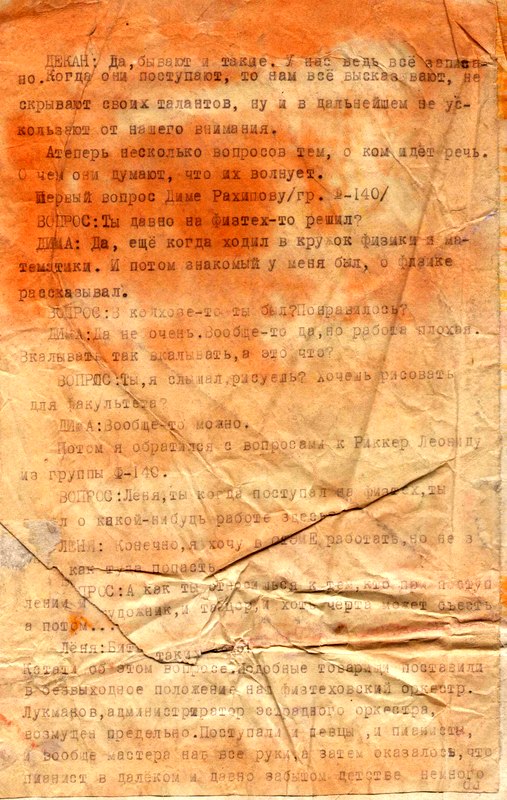 ДЕКАН: Да,бывают и такие. У нас ведь всё записа-
но.Когда они поступают, то нам всё высказывают, не
скрывают своих талантов, ну и в дальнейшем не ус-
кользают от нашего внимания.
Атеперь несколько вопросов тем, о ком идёт речь.
О чем они думают, что их волнует.
Первый вопрос Диме Рахипову/гр. Ф-140/
ВОПРОС:Ты давно на физтех-то решил?
ДИМА: Да, ещё когда ходил в кружок физики и ма-
тематики. И потом знакомый у меня был, о физике
рассказывал.
ВОПРОС:В колхозе-то ты был?Понравилось?
ДИМА:Да не очень.Вообще-то да,но работа плохая.
Вкалывать так вкалывать,а это что?
ВОПРОС:Ты,я слышал,рисуешь? Хочешь рисовать
для факультета?
ДИМА:Вообще-то можно.
Потом я обратился с вопросами к Риккер Леониду
из группы Ф-140.
ВОПРОС:Леня,ты когда поступал на физтех,ты
л о какой-нибудь работе здесь?
ЛЕНЯ: Конечно,я хочу в работать,но не з
как туда попасть
ПРОС:А как ты относишься к тем,кто при поступ
лении и художник,и танцор,и хоть черта может съесть
а потом...
Лёня:Бить таких
Кстати об этом вопросе.Подобные товарищи поставили
в безвыходное положение наш физтеховский оркестр.
Лукманов,администриратор эстрадного оркестра,
возмущен предельно.Поступали и певцы ,и пианисты,
и вообще мастера на все руки,а затем оказалось,что
пианист в далеком и давно забытом детстве немного